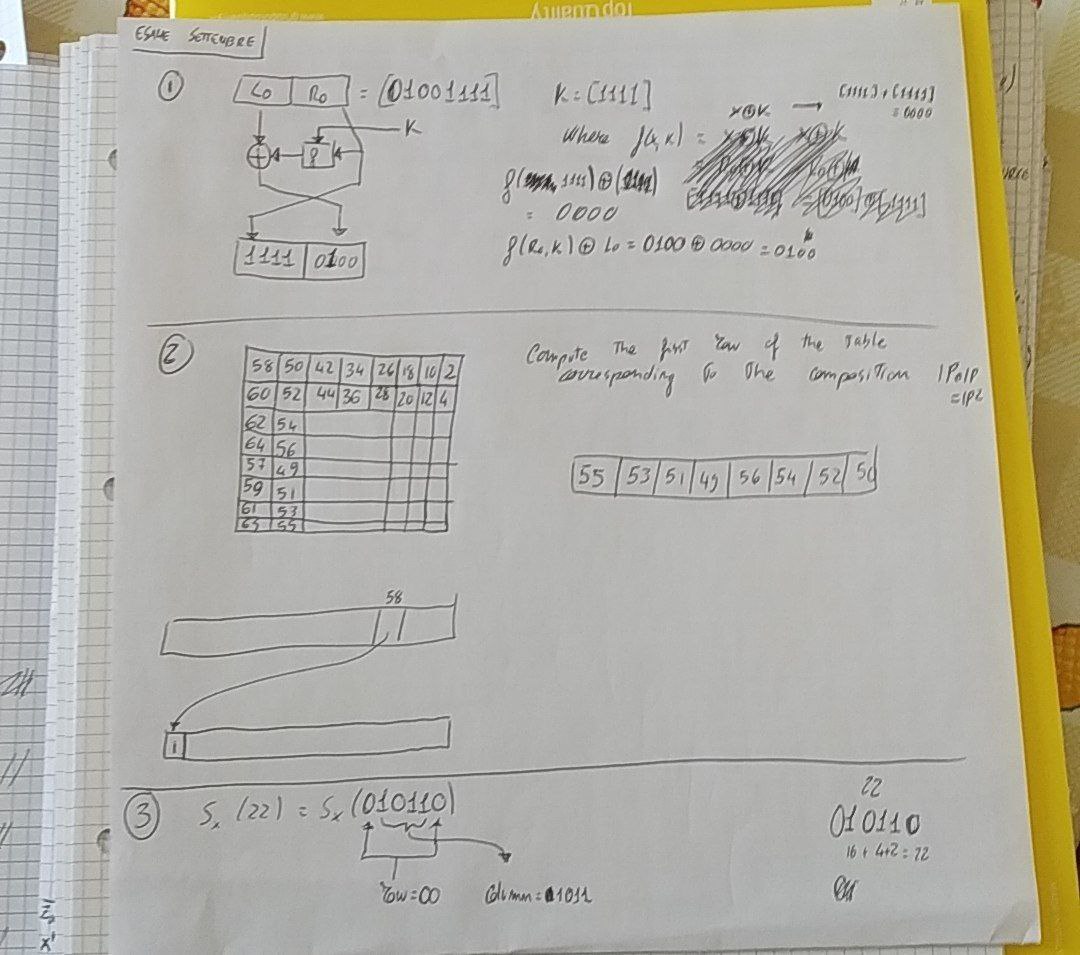 Top Quality
ESAME SETTEMBRE
①
L₀ R₀ = [01001111]
K = [1111]
[1111] + [1111]
= 0000
K
f
x⊕K
where f(x,K) =
f( , 1111) ⊕ ( )
= 0000
f(R₀,K) ⊕ L₀ = 0100 ⊕ 0000 = 0100
1111 0100
②
58 50 42 34 26 18 10 2
60 52 44 36 28 20 12 4
62 54
64 56
57 49
59 51
61 53
63 55
Compute the first row of the table
corresponding to the composition IP∘IP
= IP²
55 53 51 49 56 54 52 50
58
1
③
Sₓ (22) = Sₓ (010110)
row = 00
Column = 1011
22
010110
16 + 4+2 = 22